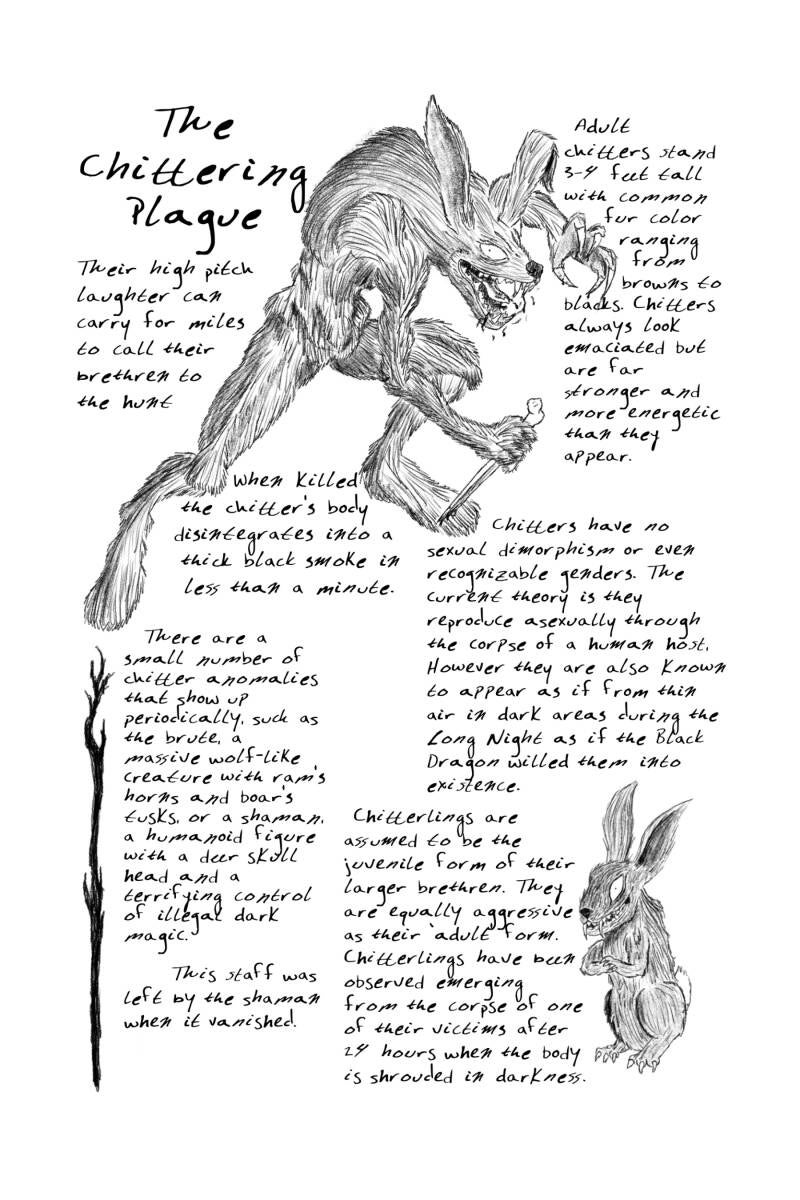 The
Chittering
Plague
Their high pitch
laughter can
carry for miles
to call their
brethren to
the hunt
Adult
chitters stand
3-4 feet tall
with common
fur color
ranging
from
browns to
blacks. Chitters
always look
emaciated but
are far
stronger and
more energetic
than they
appear.
When killed
the chitter's body
disintegrates into a
thick black smoke in
less than a minute.
Chitters have no
sexual dimorphism or even
recognizable genders. The
current theory is they
reproduce asexually through
the corpse of a human host.
However they are also known
to appear as if from thin
air in dark areas during the
Long Night as if the Black
Dragon willed them into
existence.
There are a
small number of
chitter anomalies
that show up
periodically, such as
the brute, a
massive wolf-like
creature with ram's
horns and boar's
tusks, or a shaman,
a humanoid figure
with a deer skull
head and a
terrifying control
of illegal dark
magic.
This staff was
left by the shaman
when it vanished.
Chitterlings are
assumed to be the
juvenile form of their
larger brethren. They
are equally aggressive
as their 'adult' form.
Chitterlings have been
observed emerging
from the corpse of one
of their victims after
24 hours when the body
is shrouded in darkness.